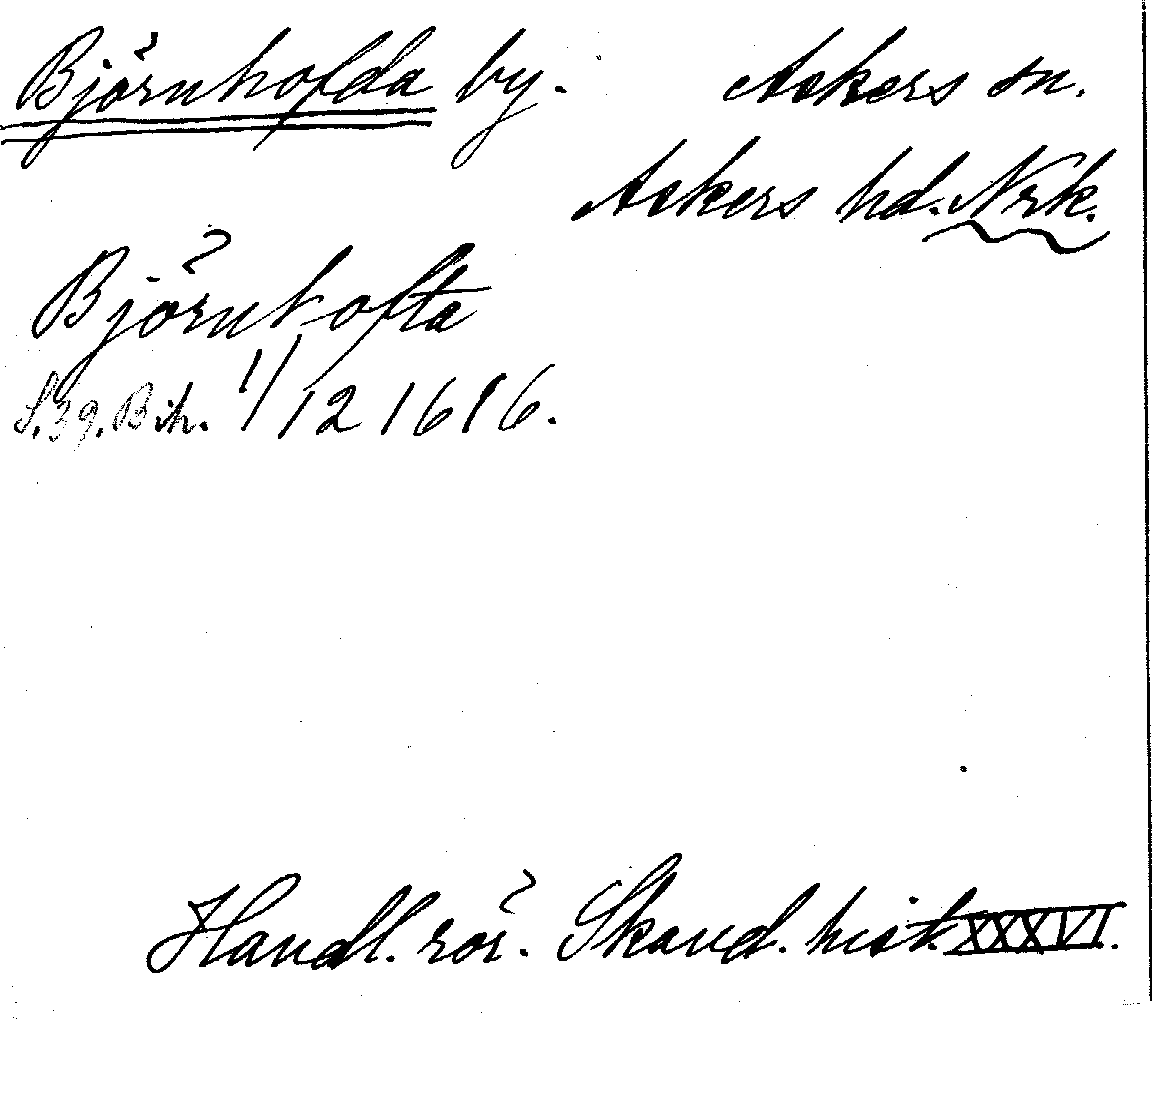 Björnhofda by. Askers sn.
Askers hd. Nrk.
Björnhofta
S. 39. Bih. 1/12 1616.
Handl. rör. Skand. hist. XXXVI.